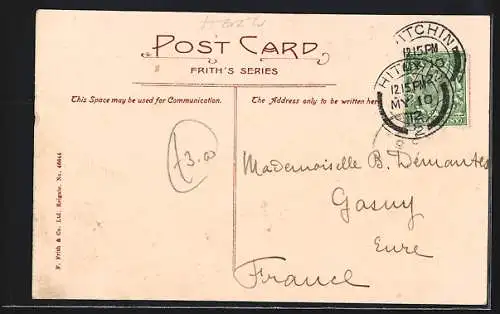 POST CARD
FRITH'S SERIES
This Space may be used for Communication.
The Address only to be written here
HITCHIN
12.15 PM
HITCHIN
12.15 PM
MY 10
12
£3.00
Mademoiselle B. Démantes
Gasny
Eure
France
F. Frith & Co. Ltd. Reigate. No.